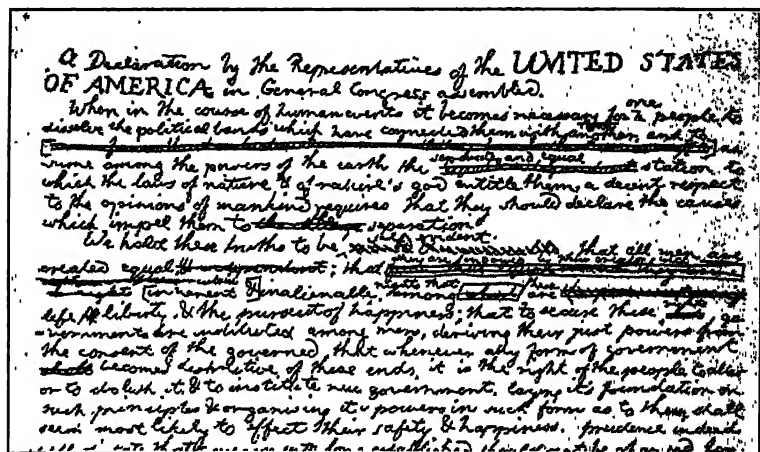 A Declaration by the Representatives of the UNITED STATES
OF AMERICA, in General Congress assembled.
When in the course of human events it becomes necessary for one people to
dissolve the political bands which have connected them with another, and to as
-sume among the powers of the earth the separate and equal station to
which the laws of nature & of nature's god entitle them, a decent respect
to the opinions of mankind requires that they should declare the causes
which impel them to separation.
We hold these truths to be self-evident. that all men are
created equal; that they are endowed by their creator with
inherent & inalienable rights that among these are
life, & liberty, & the pursuit of happiness; that to secure these rights, go
-vernments are instituted among men, deriving their just powers from
the consent of the governed; that whenever any form of government
becomes destructive of these ends, it is the right of the people to alter
or to abolish it, & to institute new government, laying it's foundation on
such principles & organising it's powers in such form as to them shall
seem most likely to effect their safety & happiness. prudence indeed